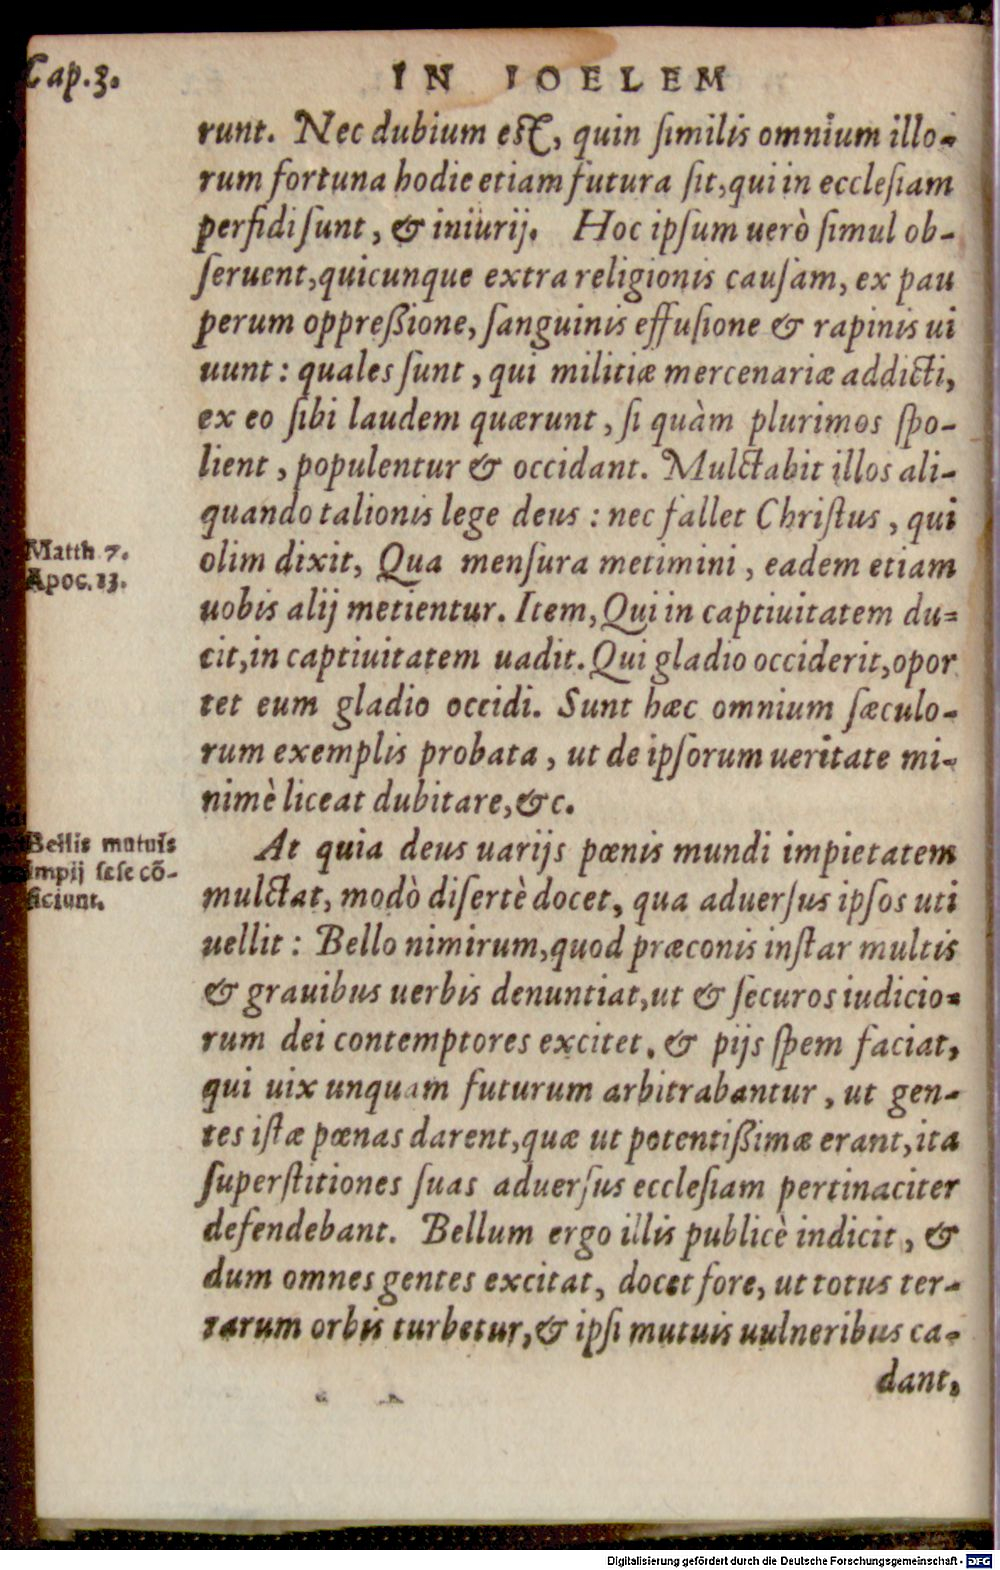 Cap.3.
IN IOELEM
runt. Nec dubium est, quin similis omnium illo-
rum fortuna hodie etiam futura sit, qui in ecclesiam
perfidi sunt, & iniurij. Hoc ipsum uerò simul ob-
seruent, quicunque extra religionis causam, ex pau
perum oppreßione, sanguinis effusione & rapinis ui
uunt: quales sunt, qui militiæ mercenariæ addicti,
ex eo sibi laudem quærunt, si quàm plurimos spo-
lient, populentur & occidant. Mulctabit illos ali-
quando talionis lege deus: nec fallet Christus, qui
Matth 7.
olim dixit, Qua mensura metimini, eadem etiam
Apoc. 13.
uobis alij metientur. Item, Qui in captiuitatem du-
cit, in captiuitatem uadit. Qui gladio occiderit, opor
tet eum gladio occidi. Sunt hæc omnium sæculo-
rum exemplis probata, ut de ipsorum ueritate mi-
nimè liceat dubitare, &c.
Bellis mutuis
impij sese cõ-
ficiunt.
At quia deus uarijs pœnis mundi impietatem
mulctat, modò disertè docet, qua aduersus ipsos uti
uellit: Bello nimirum, quod præconis instar multis
& grauibus uerbis denuntiat, ut & securos iudicio-
rum dei contemptores excitet, & pijs spem faciat,
qui uix unquam futurum arbitrabantur, ut gen-
tes istæ pœnas darent, quæ ut potentißimæ erant, ita
superstitiones suas aduersus ecclesiam pertinaciter
defendebant. Bellum ergo illis publicè indicit, &
dum omnes gentes excitat, docet fore, ut totus ter-
rarum orbis turbetur, & ipsi mutuis uulneribus ca-
dant.
Digitalisierung gefördert durch die Deutsche Forschungsgemeinschaft - DFG